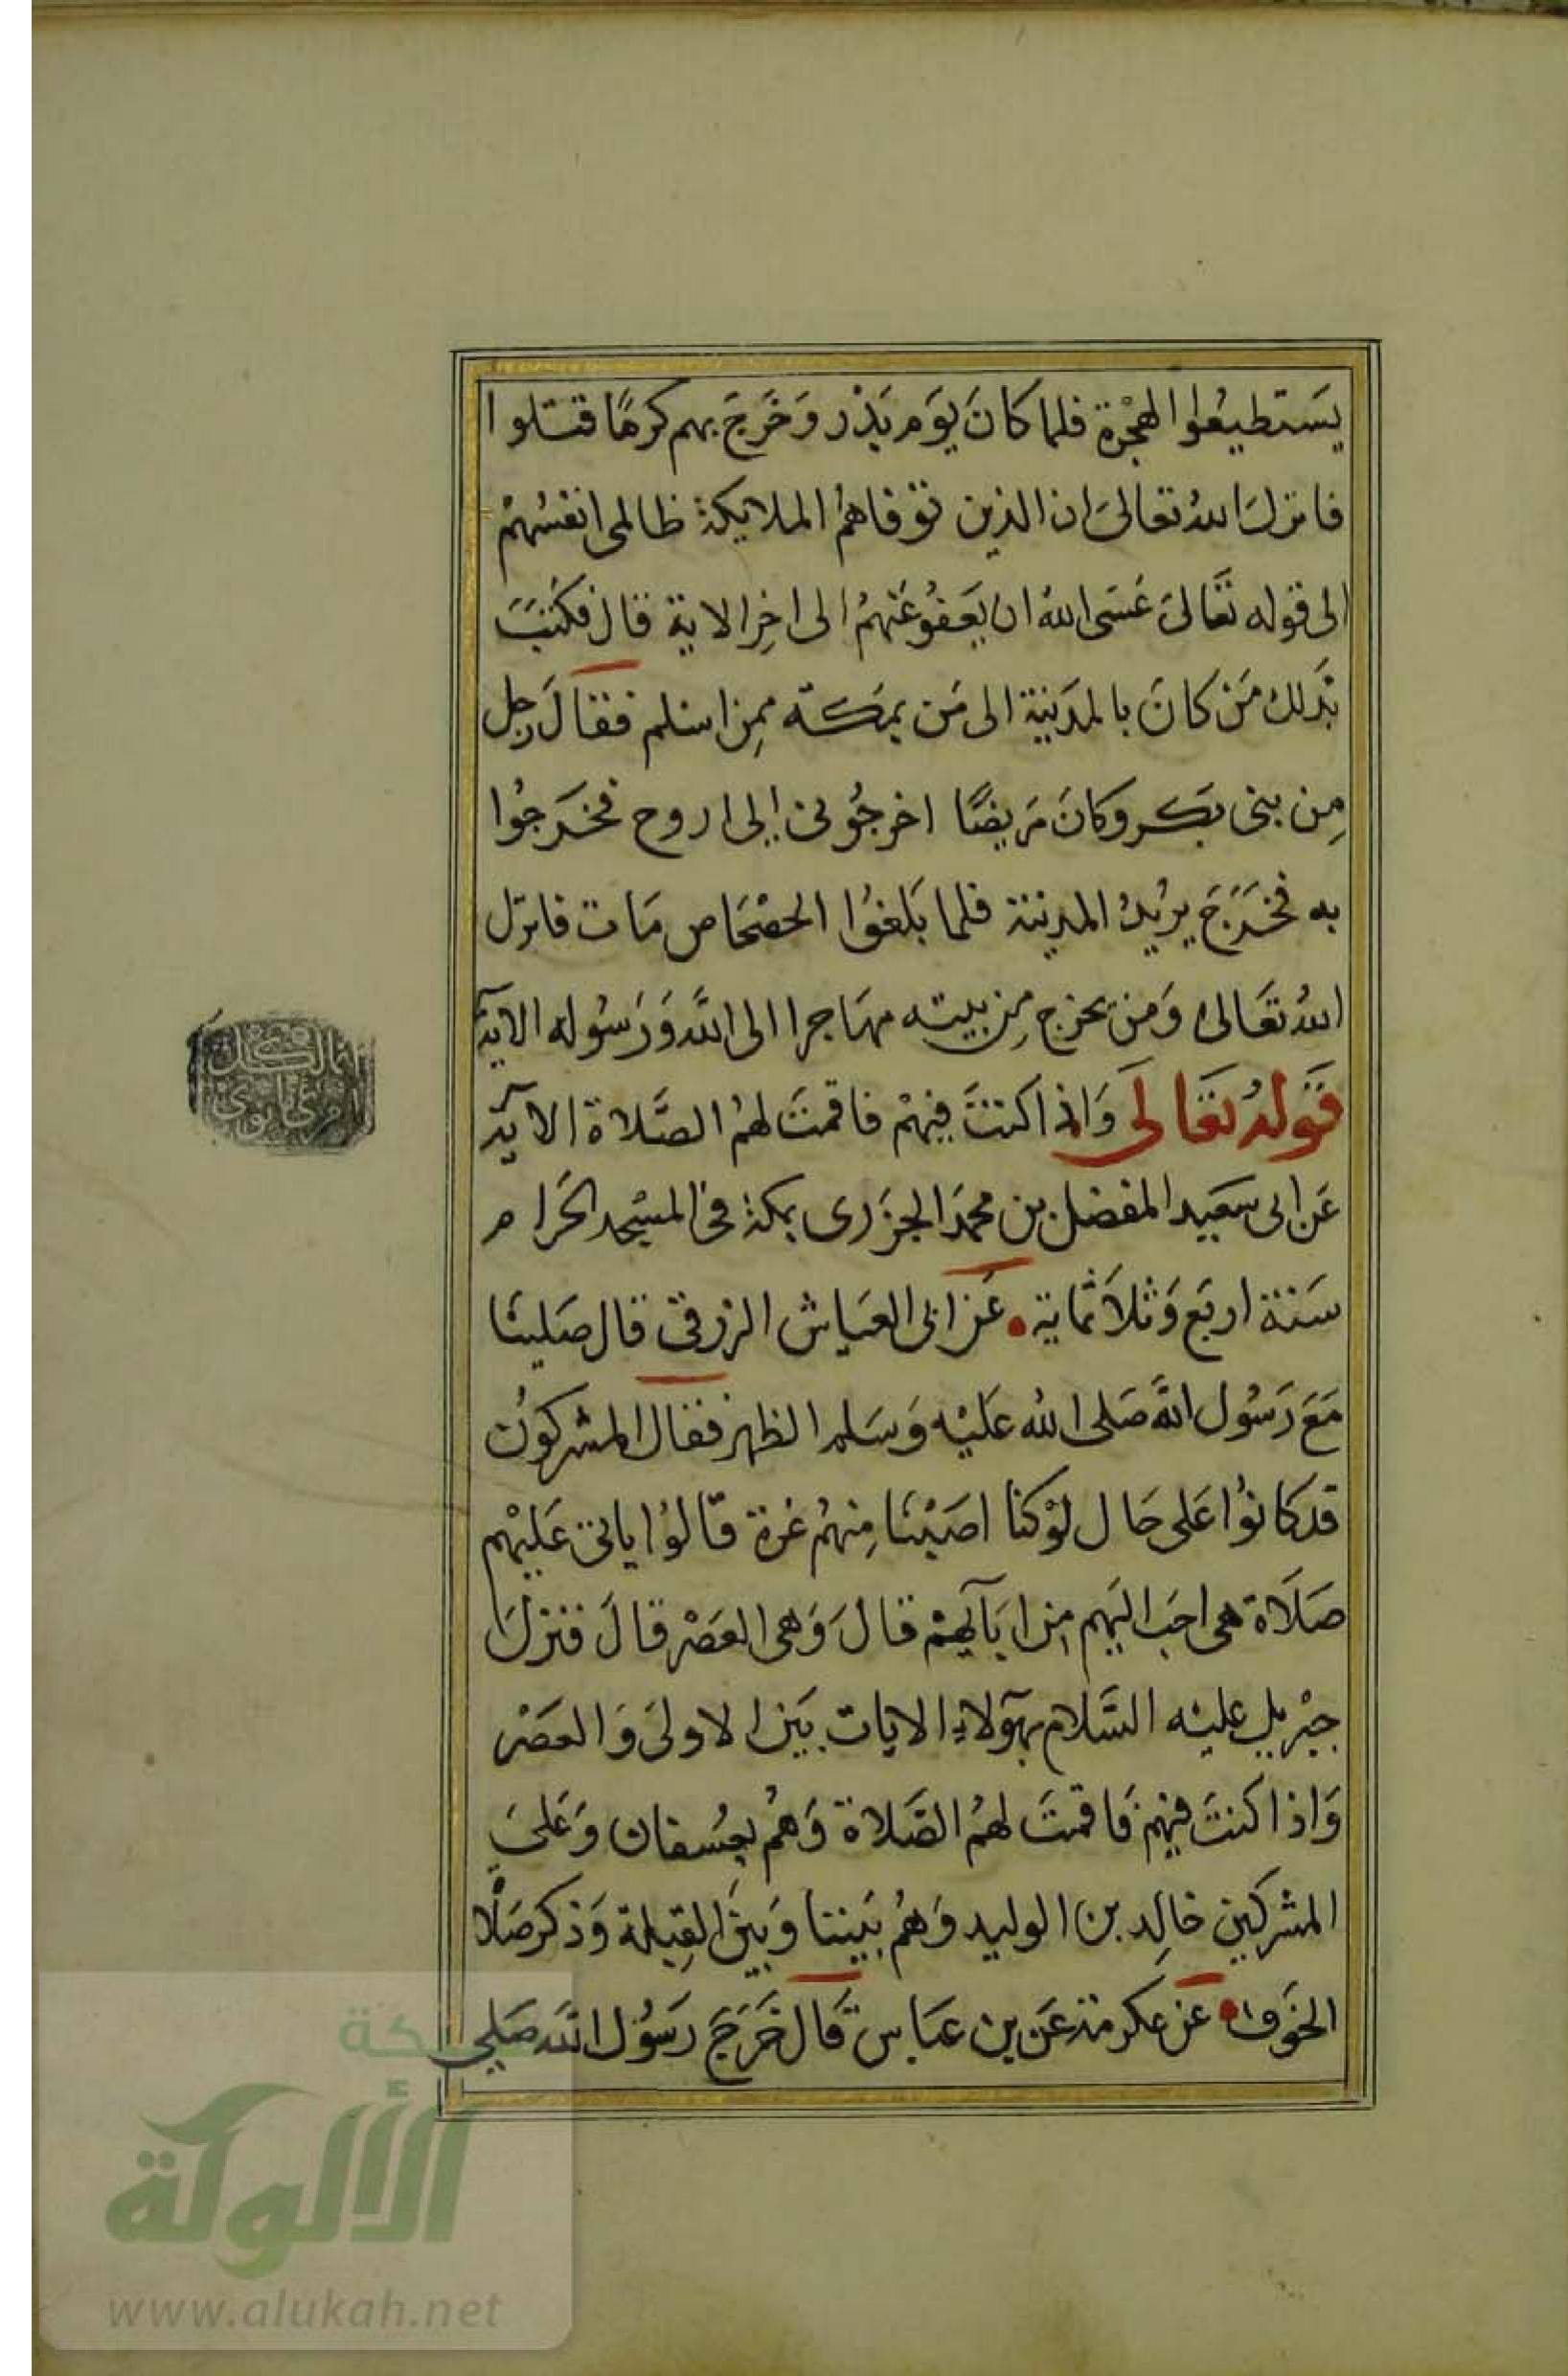 يَستطيعُوا الهجْرة فلما كَانَ يَوَم بَدْر وَخَرَجَ بهم كرهًا قتلوا
فانزلَ اللهُ تعَالىَ ان الذين توفاهمُ الملايكة ظالمى انفسُهمْ
الى قوله تعَالىَ عَسَى اللهُ ان يَعفوُ عَنهمُ الى اخِر الاية قال فكتبَ
بذلك مَن كانَ بالمدَينة الى مَن بمَكة ممِن اسلم فقالَ رجل
مِن بنى بَكر وكانَ مَريضًا اخرجُونى الى اروح فخَرجوُا
به فخَرَجَ يريُدُ المدينة فلما بَلغوُا الحصْحَاص مَات فانزل
اللهُ تعَالىَ وَمن يخرج مِن بيته مهَاجرا الى اللَّه وَرَسُوله الاية
قَولهُ تعَالىَ وَاذا كنتَ فيهمْ فاقمتَ لهمُ الصَّلاة الاية
عَن ابى سَعَيد المفضل بن محمَد الجزَرى بمكة فى المسْجد الحَرام
سَنة اربَع وَثلاَثماية عَن ابى العيَاش الزرقى قال صَليَنا
مَعَ رَسُول اللهَّ صَلى اللهُ عَليْه وَسَلم الظهرَ فقال المشركوُن
قد كانوُا عَلى حَال لوْ كنا اصَبْنَا مِنهمُ غرة قالوُا ياتى عَليْهم
صَلاَة هى احَب اليَهم مِن ابَآيهمْ قالَ وَهى العَصْر قالَ فنزلَ
جبْريل عليْه السَّلام بهَؤلاءِ الايات بَين الاولىَ وَالعصَر
وَاذا كنتَ فيهمْ فَاقمتَ لهمُ الصَّلاة وَهُم بعُسفان وَعَلىَ
المشركين خالِد بن الوليد وَهُم بيَننا وَبيَن القِبلة وَذكر صَلاة
الخوَف عَن عكرمة عَن بن عبَاس قَال خَرَجَ رَسُول اللَّه صَلى
شبكة
الألوكة
www.alukah.net